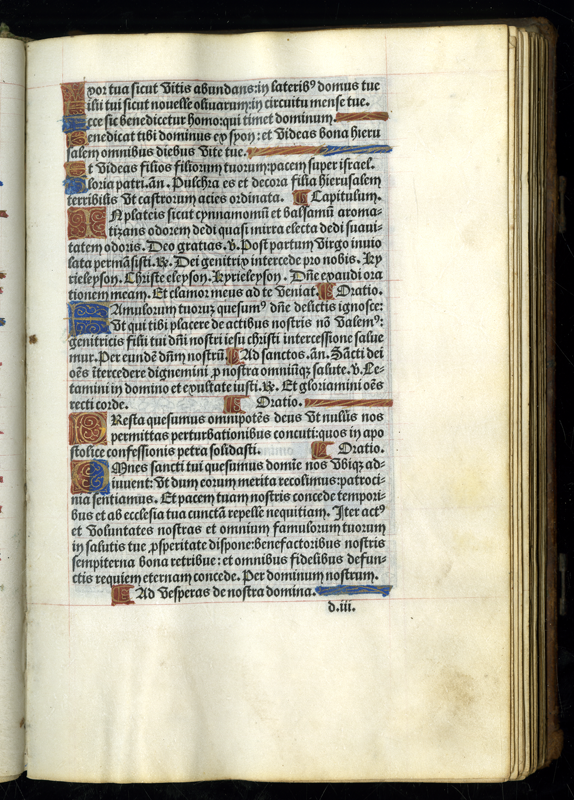 Uxor tua sicut vitis abundans: in lateribꝰ domus tue
Filii tui sicut nouelle oliuarum: in circuitu mense tue.
Ecce sic benedicetur homo: qui timet dominum.
Benedicat tibi dominus ex syon: et videas bona hieru
salem omnibus diebus vite tue.
Et videas filios filiorum tuorum: pacem super israel.
Gloria patri. añ. Pulchra es et decora filia hierusalem
terribilis vt castrorum acies ordinata. C Capitulum.
IN plateis sicut cynnamomū et balsamū aroma-
tizans odorem dedi quasi mirra electa dedi suaui-
tatem odoris. Deo gratias. ꝟ. Post partum virgo inuio
lata permāsisti. ℟. Dei genitrix intercede pro nobis. Ky
rieleyson. Christe eleyson. Kyrieleyson. Dñe exaudi ora
tionem meam. Et clamor meus ad te veniat. C Oratio.
FAmulorum tuoruꝫ quesumꝰ dñe delictis ignosce:
Vt qui tibi placere de actibus nostris nō valemꝰ:
genitricis filii tui dñi nostri iesu christi intercessione salue
mur. Per eundē dñm nostrū. C Ad sanctos. añ. Sācti dei
oēs ītercedere dignemini ꝓ nostra omniūꝗꝫ salute. ꝟ. Le-
tamini in domino et exultate iusti. ℟. Et gloriamini oēs
recti corde. C Oratio.
PResta quesumus omnipotēs deus vt nullis nos
permittas perturbationibus concuti: quos in apo
stolice confessionis petra solidasti. C Oratio.
OMnes sancti tui quesumus domie nos vbiqꝫ ad-
iuuent: vt dum eorum merita recolimus: patroci-
nia sentiamus. Et pacem tuam nostris concede tempori-
bus et ab ecclesia tua cunctā repelle nequitiam. Iter actꝰ
et voluntates nostras et omnium famulorum tuorum
in salutis tue ꝓsperitate dispone: benefactoribus nostris
sempiterna bona retribue: et omnibus fidelibus defun-
ctis requiem eternam concede. Per dominum nostrum.
C Ad vesperas de nostra domina.
d.iii.